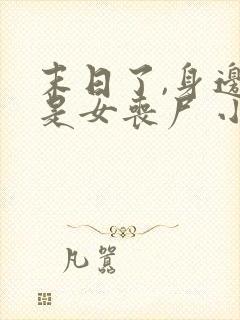 末日了,身邊
是女喪尸 小
凡囂